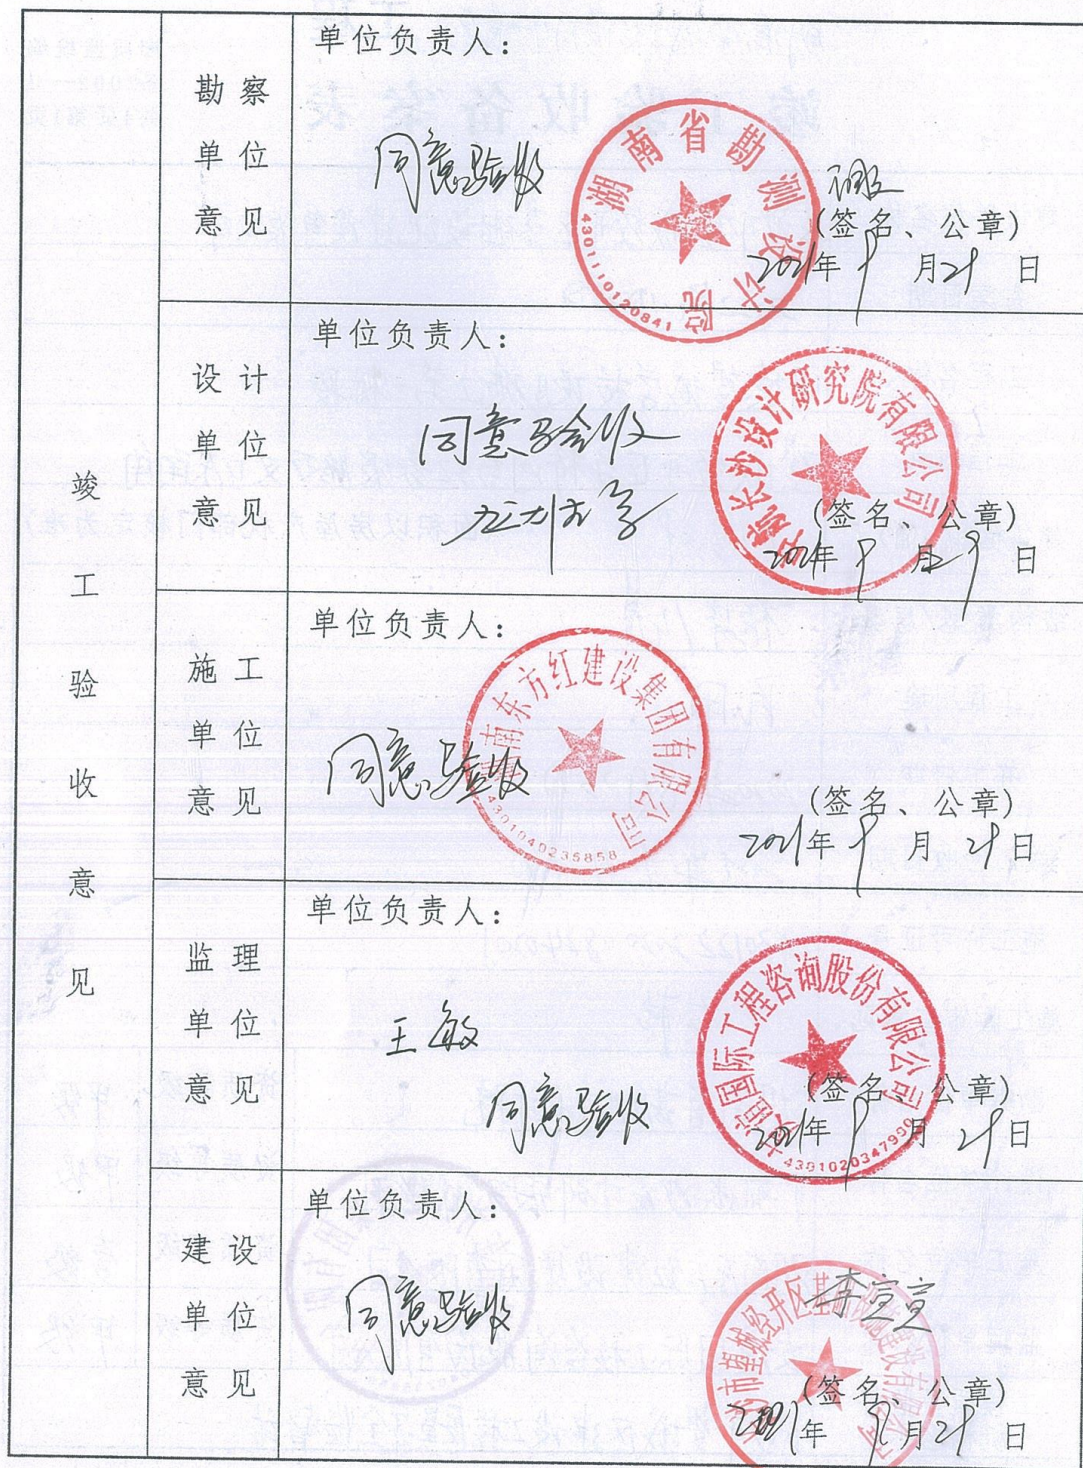 竣工验收意见
勘察单位意见
单位负责人：
同意验收
湖南省勘测设计院
4301110120841
(签名、公章)
2021年9月29日
设计单位意见
单位负责人：
同意验收
中航长沙设计研究院有限公司
(签名、公章)
2021年9月29日
施工单位意见
单位负责人：
同意验收
湖南东方红建设集团有限公司
4301040235858
(签名、公章)
2021年9月29日
监理单位意见
单位负责人：
王敏
同意验收
友谊国际工程咨询股份有限公司
4301020347990
(签名、公章)
2021年9月29日
建设单位意见
单位负责人：
同意验收
市望城经开区基础设施建设有限公司
(签名、公章)
2021年9月29日